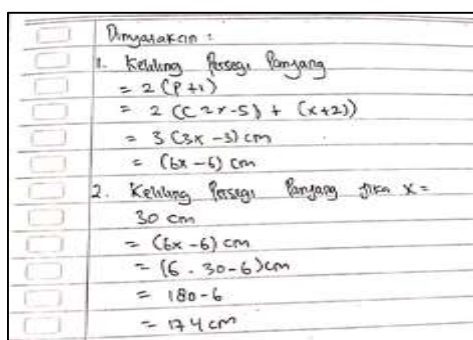 Dinyatakan :
1. Keliling Persegi Panjang
= 2 (P+l)
= 2 ((2x-5) + (x+2))
= 3 (3x-3) cm
= (6x-6) cm
2. Keliling Persegi Panjang jika x =
30 cm
= (6x-6) cm
= (6 . 30-6) cm
= 180-6
= 174 cm